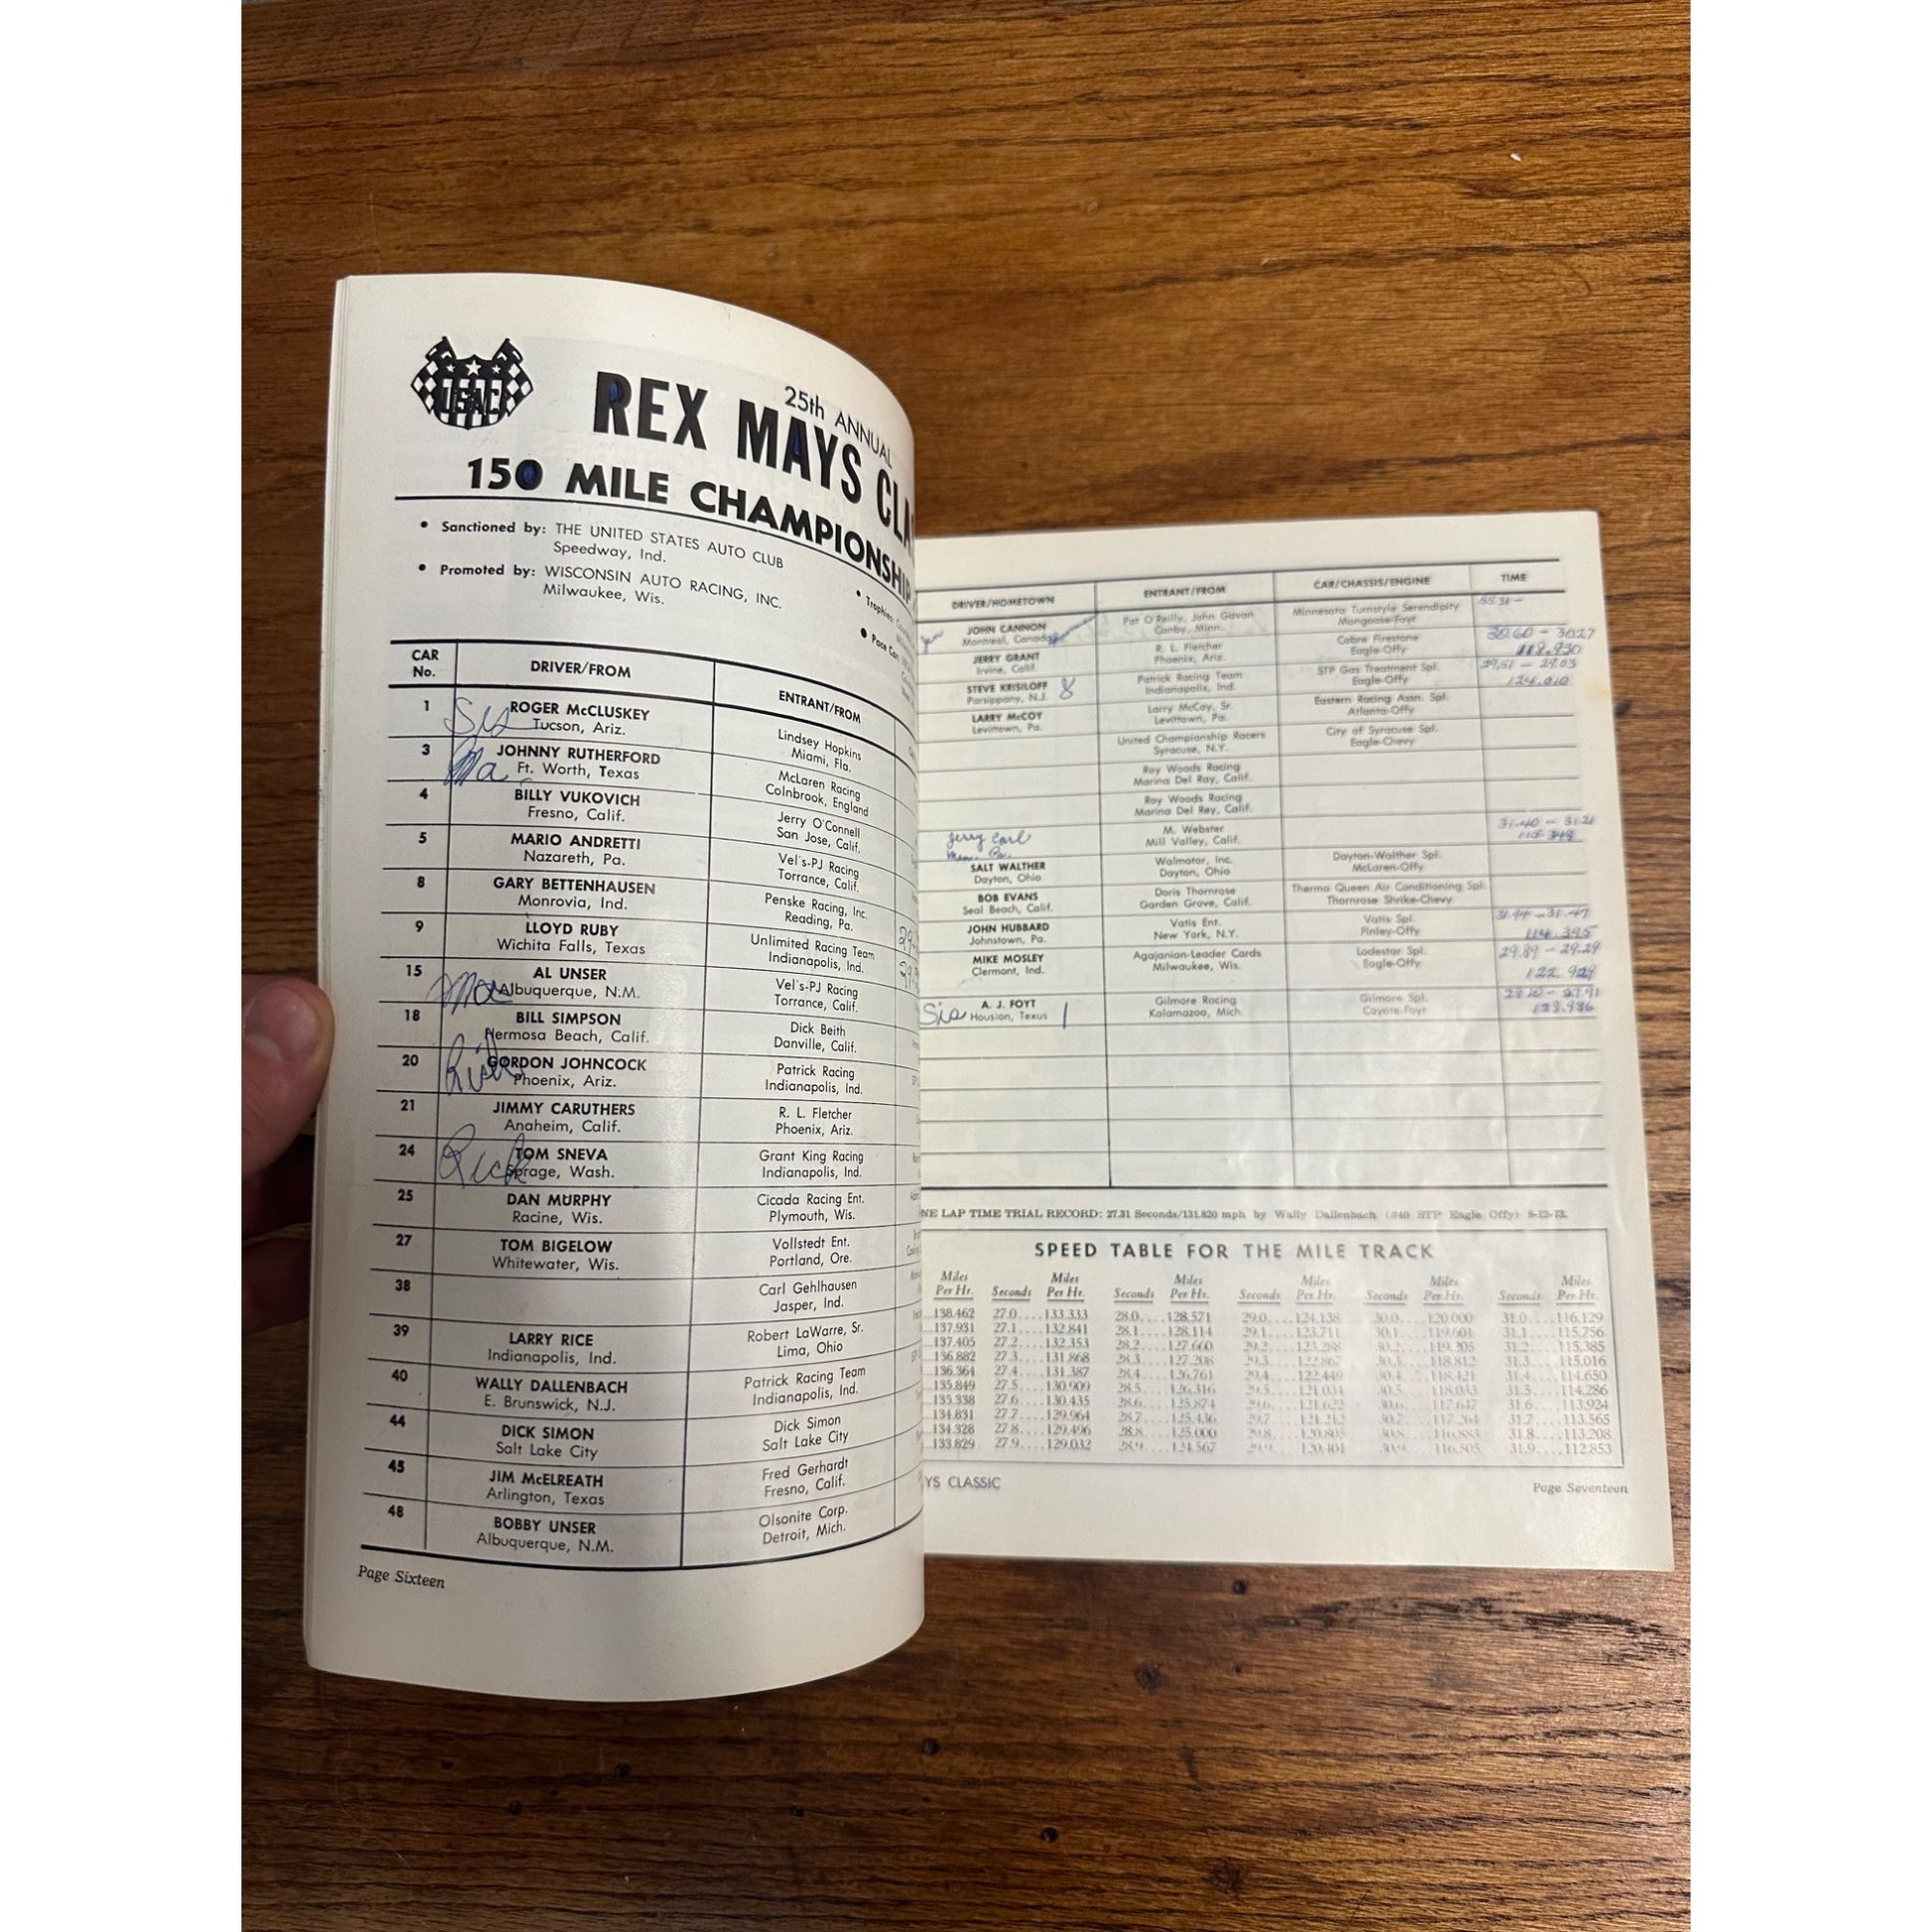 USAC
25th ANNUAL
REX MAYS CLA
150 MILE CHAMPIONSHIP
• Sanctioned by: THE UNITED STATES AUTO CLUB
Speedway, Ind.
• Promoted by: WISCONSIN AUTO RACING, INC.
Milwaukee, Wis.
• Trophies:
• Pace Car:
CAR No. DRIVER/FROM ENTRANT/FROM
1 Sis ROGER McCLUSKEY Lindsey Hopkins
Tucson, Ariz. Miami, Fla.
3 Ma JOHNNY RUTHERFORD McLaren Racing
Ft. Worth, Texas Colnbrook, England
4 BILLY VUKOVICH Jerry O'Connell
Fresno, Calif. San Jose, Calif.
5 MARIO ANDRETTI Vel's-PJ Racing
Nazareth, Pa. Torrance, Calif.
8 GARY BETTENHAUSEN Penske Racing, Inc.
Monrovia, Ind. Reading, Pa.
9 LLOYD RUBY Unlimited Racing Team
Wichita Falls, Texas Indianapolis, Ind.
15 Ma AL UNSER Vel's-PJ Racing
Albuquerque, N.M. Torrance, Calif.
18 BILL SIMPSON Dick Beith
Hermosa Beach, Calif. Danville, Calif.
20 Rick GORDON JOHNCOCK Patrick Racing
Phoenix, Ariz. Indianapolis, Ind.
21 JIMMY CARUTHERS R. L. Fletcher
Anaheim, Calif. Phoenix, Ariz.
24 Rick TOM SNEVA Grant King Racing
Sprage, Wash. Indianapolis, Ind.
25 DAN MURPHY Cicada Racing Ent.
Racine, Wis. Plymouth, Wis.
27 TOM BIGELOW Vollstedt Ent.
Whitewater, Wis. Portland, Ore.
38 Carl Gehlhausen
Jasper, Ind.
39 LARRY RICE Robert LaWarre, Sr.
Indianapolis, Ind. Lima, Ohio
40 WALLY DALLENBACH Patrick Racing Team
E. Brunswick, N.J. Indianapolis, Ind.
44 DICK SIMON Dick Simon
Salt Lake City Salt Lake City
45 JIM McELREATH Fred Gerhardt
Arlington, Texas Fresno, Calif.
48 BOBBY UNSER Olsonite Corp.
Albuquerque, N.M. Detroit, Mich.
Page Sixteen
DRIVER/HOMETOWN ENTRANT/FROM CAR/CHASSIS/ENGINE TIME
JOHN CANNON Pat O'Reilly, John Gavan Minnesota Turnstyle Serendipity
Montreal, Canada Canby, Minn. Mongoose-Foyt
JERRY GRANT R. L. Fletcher Cobre Firestone 30.60 - 30.27
Irvine, Calif. Phoenix, Ariz. Eagle-Offy 118.930
STEVE KRISILOFF 8 Patrick Racing Team STP Gas Treatment Spl. 29.51 - 29.03
Parsippany, N.J. Indianapolis, Ind. Eagle-Offy 124.010
LARRY McCOY Larry McCoy, Sr. Eastern Racing Assn. Spl.
Levittown, Pa. Levittown, Pa. Atlanta-Offy
United Championship Racers City of Syracuse Spl.
Syracuse, N.Y. Eagle-Chevy
Roy Woods Racing
Marina Del Ray, Calif.
Roy Woods Racing
Marina Del Rey, Calif.
Jerry Carl M. Webster 31.40 - 31.21
Mill Valley, Calif.
SALT WALTHER Walmotor, Inc. Dayton-Walther Spl.
Dayton, Ohio Dayton, Ohio McLaren-Offy
BOB EVANS Doris Thornrose Therma Queen Air Conditioning Spl.
Seal Beach, Calif. Garden Grove, Calif. Thornrose Shrike-Chevy
JOHN HUBBARD Vatis Ent. Vatis Spl. 31.44 - 31.47
Johnstown, Pa. New York, N.Y. Finley-Offy 114.395
MIKE MOSLEY Agajanian-Leader Cards Lodestar Spl. 29.89 - 29.29
Clermont, Ind. Milwaukee, Wis. Eagle-Offy 122.909
Sis A. J. FOYT 1 Gilmore Racing Gilmore Spl.
Houston, Texus Kalamazoo, Mich. Coyote-Foyt 128.986
NE LAP TIME TRIAL RECORD: 27.31 Seconds/131.820 mph by Wally Dallenbach (#40 STP Eagle Offy) 8-12-73.
SPEED TABLE FOR THE MILE TRACK
Miles Per Hr. Seconds Miles Per Hr. Seconds Miles Per Hr. Seconds Miles Per Hr. Seconds Miles Per Hr. Seconds Miles Per Hr.
138.462 27.0....133.333 28.0....128.571 29.0....124.138 30.0....120.000 31.0....116.129
137.931 27.1....132.841 28.1....128.114 29.1....123.711 30.1....119.601 31.1....115.756
137.405 27.2....132.353 28.2....127.660 29.2....123.288 30.2....119.205 31.2....115.385
136.882 27.3....131.868 28.3....127.208 29.3....122.867 30.3....118.812 31.3....115.016
136.364 27.4....131.387 28.4....126.761 29.4....122.449 30.4....118.421 31.4....114.650
135.849 27.5....130.909 28.5....126.316 29.5....121.034 30.5....118.033 31.5....114.286
135.338 27.6....130.435 28.6....125.874 29.6....121.622 30.6....117.647 31.6....113.924
134.831 27.7....129.964 28.7....125.436 29.7....121.212 30.7....117.264 31.7....113.565
134.328 27.8....129.496 28.8....125.000 29.8....120.805 30.8....116.883 31.8....113.208
133.829 27.9....129.032 28.9....124.567 29.9....120.401 30.9....116.505 31.9....112.853
YS CLASSIC
Page Seventeen